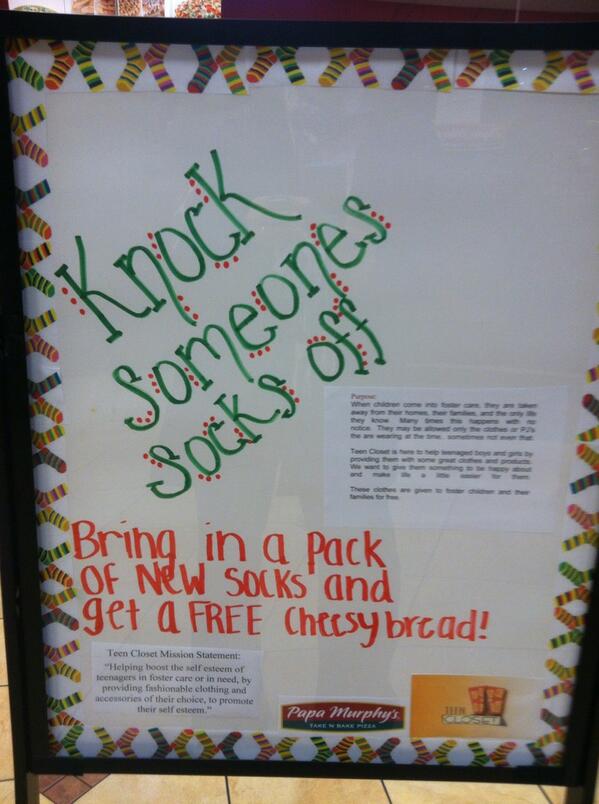 Knock
Someones
Socks off
Purpose:
When children come into foster care, they are taken
away from their homes, their families, and the only life
they know. Many times this happens with no
notice. They may be allowed only the clothes or PJ's
the are wearing at the time.. sometimes not even that.
Teen Closet is here to help teenaged boys and girls by
providing them with some great clothes and products.
We want to give them something to be happy about
and make life a little easier for them.
These clothes are given to foster children and their
families for free.
Bring in a pack
OF NEW SOCKS and
get a FREE Cheesybread!
Teen Closet Mission Statement:
"Helping boost the self esteem of
teenagers in foster care or in need, by
providing fashionable clothing and
accessories of their choice, to promote
their self esteem."
Papa Murphy's
TAKE N BAKE PIZZA
TEEN
CLOSET